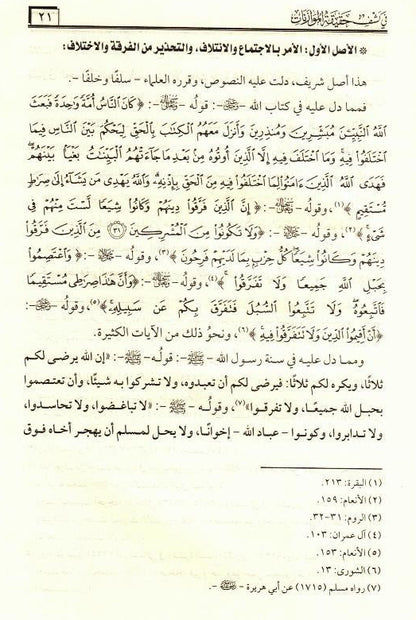 في كشف حقيقة الموازنات ٢١
* الأصل الأول: الأمر بالاجتماع والائتلاف، والتحذير من الفرقة والاختلاف:
هذا أصل شريف، دلت عليه النصوص، وقرره العلماء – سلفًا وخلفًا –.
فمما دل عليه في كتاب الله – ﷻ –: قوله – ﷻ –: ﴿كَانَ النَّاسُ أُمَّةً وَاحِدَةً فَبَعَثَ
اللَّهُ النَّبِيِّينَ مُبَشِّرِينَ وَمُنذِرِينَ وَأَنزَلَ مَعَهُمُ الْكِتَابَ بِالْحَقِّ لِيَحْكُمَ بَيْنَ النَّاسِ فِيمَا
اخْتَلَفُوا فِيهِ وَمَا اخْتَلَفَ فِيهِ إِلَّا الَّذِينَ أُوتُوهُ مِن بَعْدِ مَا جَاءَتْهُمُ الْبَيِّنَاتُ بَغْيًا بَيْنَهُمْ
فَهَدَى اللَّهُ الَّذِينَ ءَامَنُوا لِمَا اخْتَلَفُوا فِيهِ مِنَ الْحَقِّ بِإِذْنِهِ وَاللَّهُ يَهْدِى مَن يَشَاءُ إِلَى صِرَاطٍ
مُّسْتَقِيمٍ﴾(١)، وقوله – ﷻ –: ﴿إِنَّ الَّذِينَ فَرَّقُوا دِينَهُمْ وَكَانُوا شِيَعًا لَّسْتَ مِنْهُمْ فِى
شَىْءٍ﴾(٢)، وقوله – ﷻ –: ﴿وَلَا تَكُونُوا مِنَ الْمُشْرِكِينَ ٣١ مِنَ الَّذِينَ فَرَّقُوا
دِينَهُمْ وَكَانُوا شِيَعًا كُلُّ حِزْبٍ بِمَا لَدَيْهِمْ فَرِحُونَ﴾(٣)، وقوله – ﷻ –: ﴿وَاعْتَصِمُوا
بِحَبْلِ اللَّهِ جَمِيعًا وَلَا تَفَرَّقُوا﴾(٤)، وقوله – ﷻ –: ﴿وَأَنَّ هَذَا صِرَاطِى مُسْتَقِيمًا
فَاتَّبِعُوهُ وَلَا تَتَّبِعُوا السُّبُلَ فَتَفَرَّقَ بِكُمْ عَن سَبِيلِهِ﴾(٥)، وقوله – ﷻ –:
﴿أَنْ أَقِيمُوا الدِّينَ وَلَا تَتَفَرَّقُوا فِيهِ﴾(٦)، ونحو ذلك من الآيات الكثيرة.
ومما دل عليه في سنة رسول الله – ﷺ –: قوله – ﷺ –: «إن الله يرضى لكم
ثلاثًا، ويكره لكم ثلاثًا: فيرضى لكم أن تعبدوه، ولا تشركوا به شيئًا، وأن تعتصموا
بحبل الله جميعًا، ولا تفرقوا»(٧)، وقوله – ﷺ –: «لا تباغضوا، ولا تحاسدوا،
ولا تدابروا، وكونوا – عباد الله – إخوانًا، ولا يحل لمسلم أن يهجر أخاه فوق
(١) البقرة: ٢١٣.
(٢) الأنعام: ١٥٩.
(٣) الروم: ٣١-٣٢.
(٤) آل عمران: ١٠٣.
(٥) الأنعام: ١٥٣.
(٦) الشورى: ١٣.
(٧) رواه مسلم (١٧١٥) عن أبي هريرة – ﷺ –.